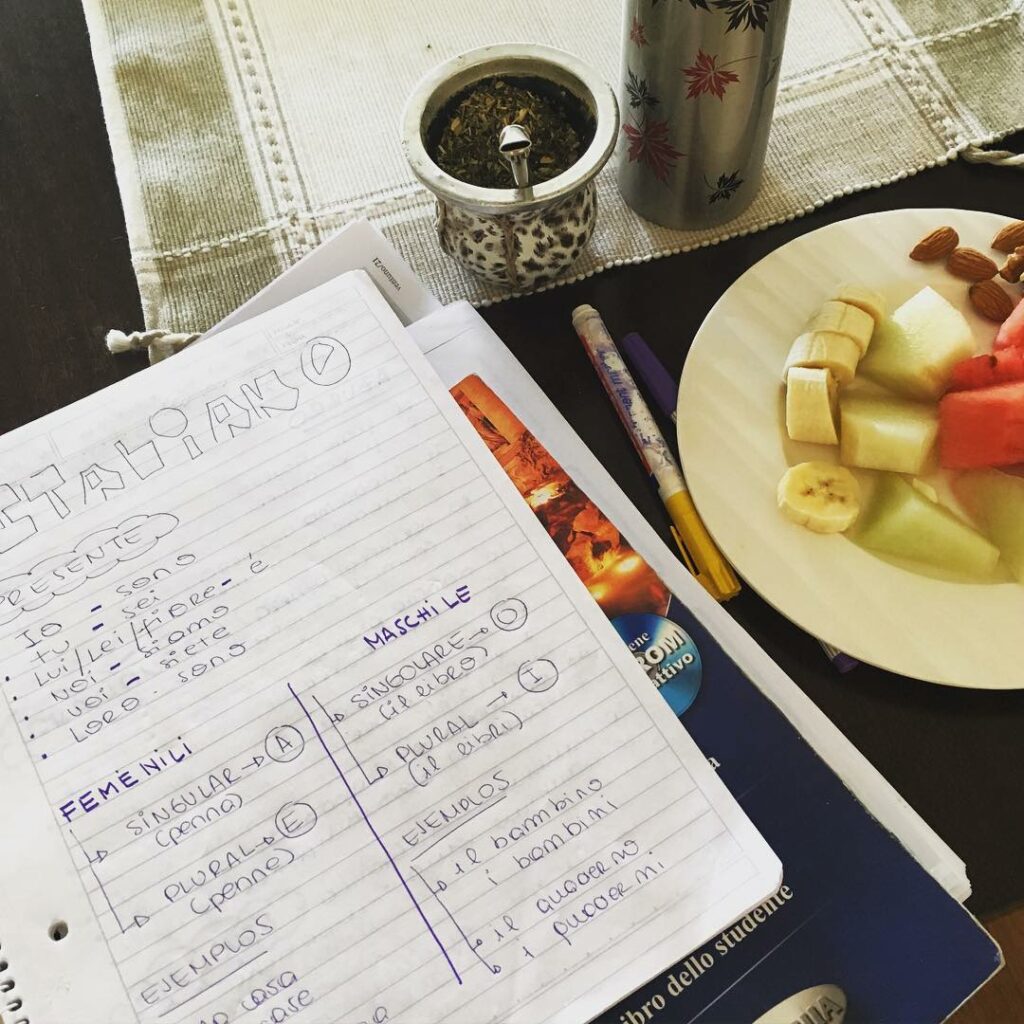 ITALIANO
PRESENTE
IO - SONO
TU - SEI
LUI/LEI/
- É
NOI - SIAMO
VOI - SIETE
LORO - SONO
FEMENILI
SINGULAR → A
(penna)
PLURAL → E
(penne)
EJEMPLOS
casa
MASCHILE
SINGOLARE → O
(il libro)
PLURAL → I
(il libri)
EJEMPLOS
il bambino
i bambini
il
i
ROM
libro dello studente